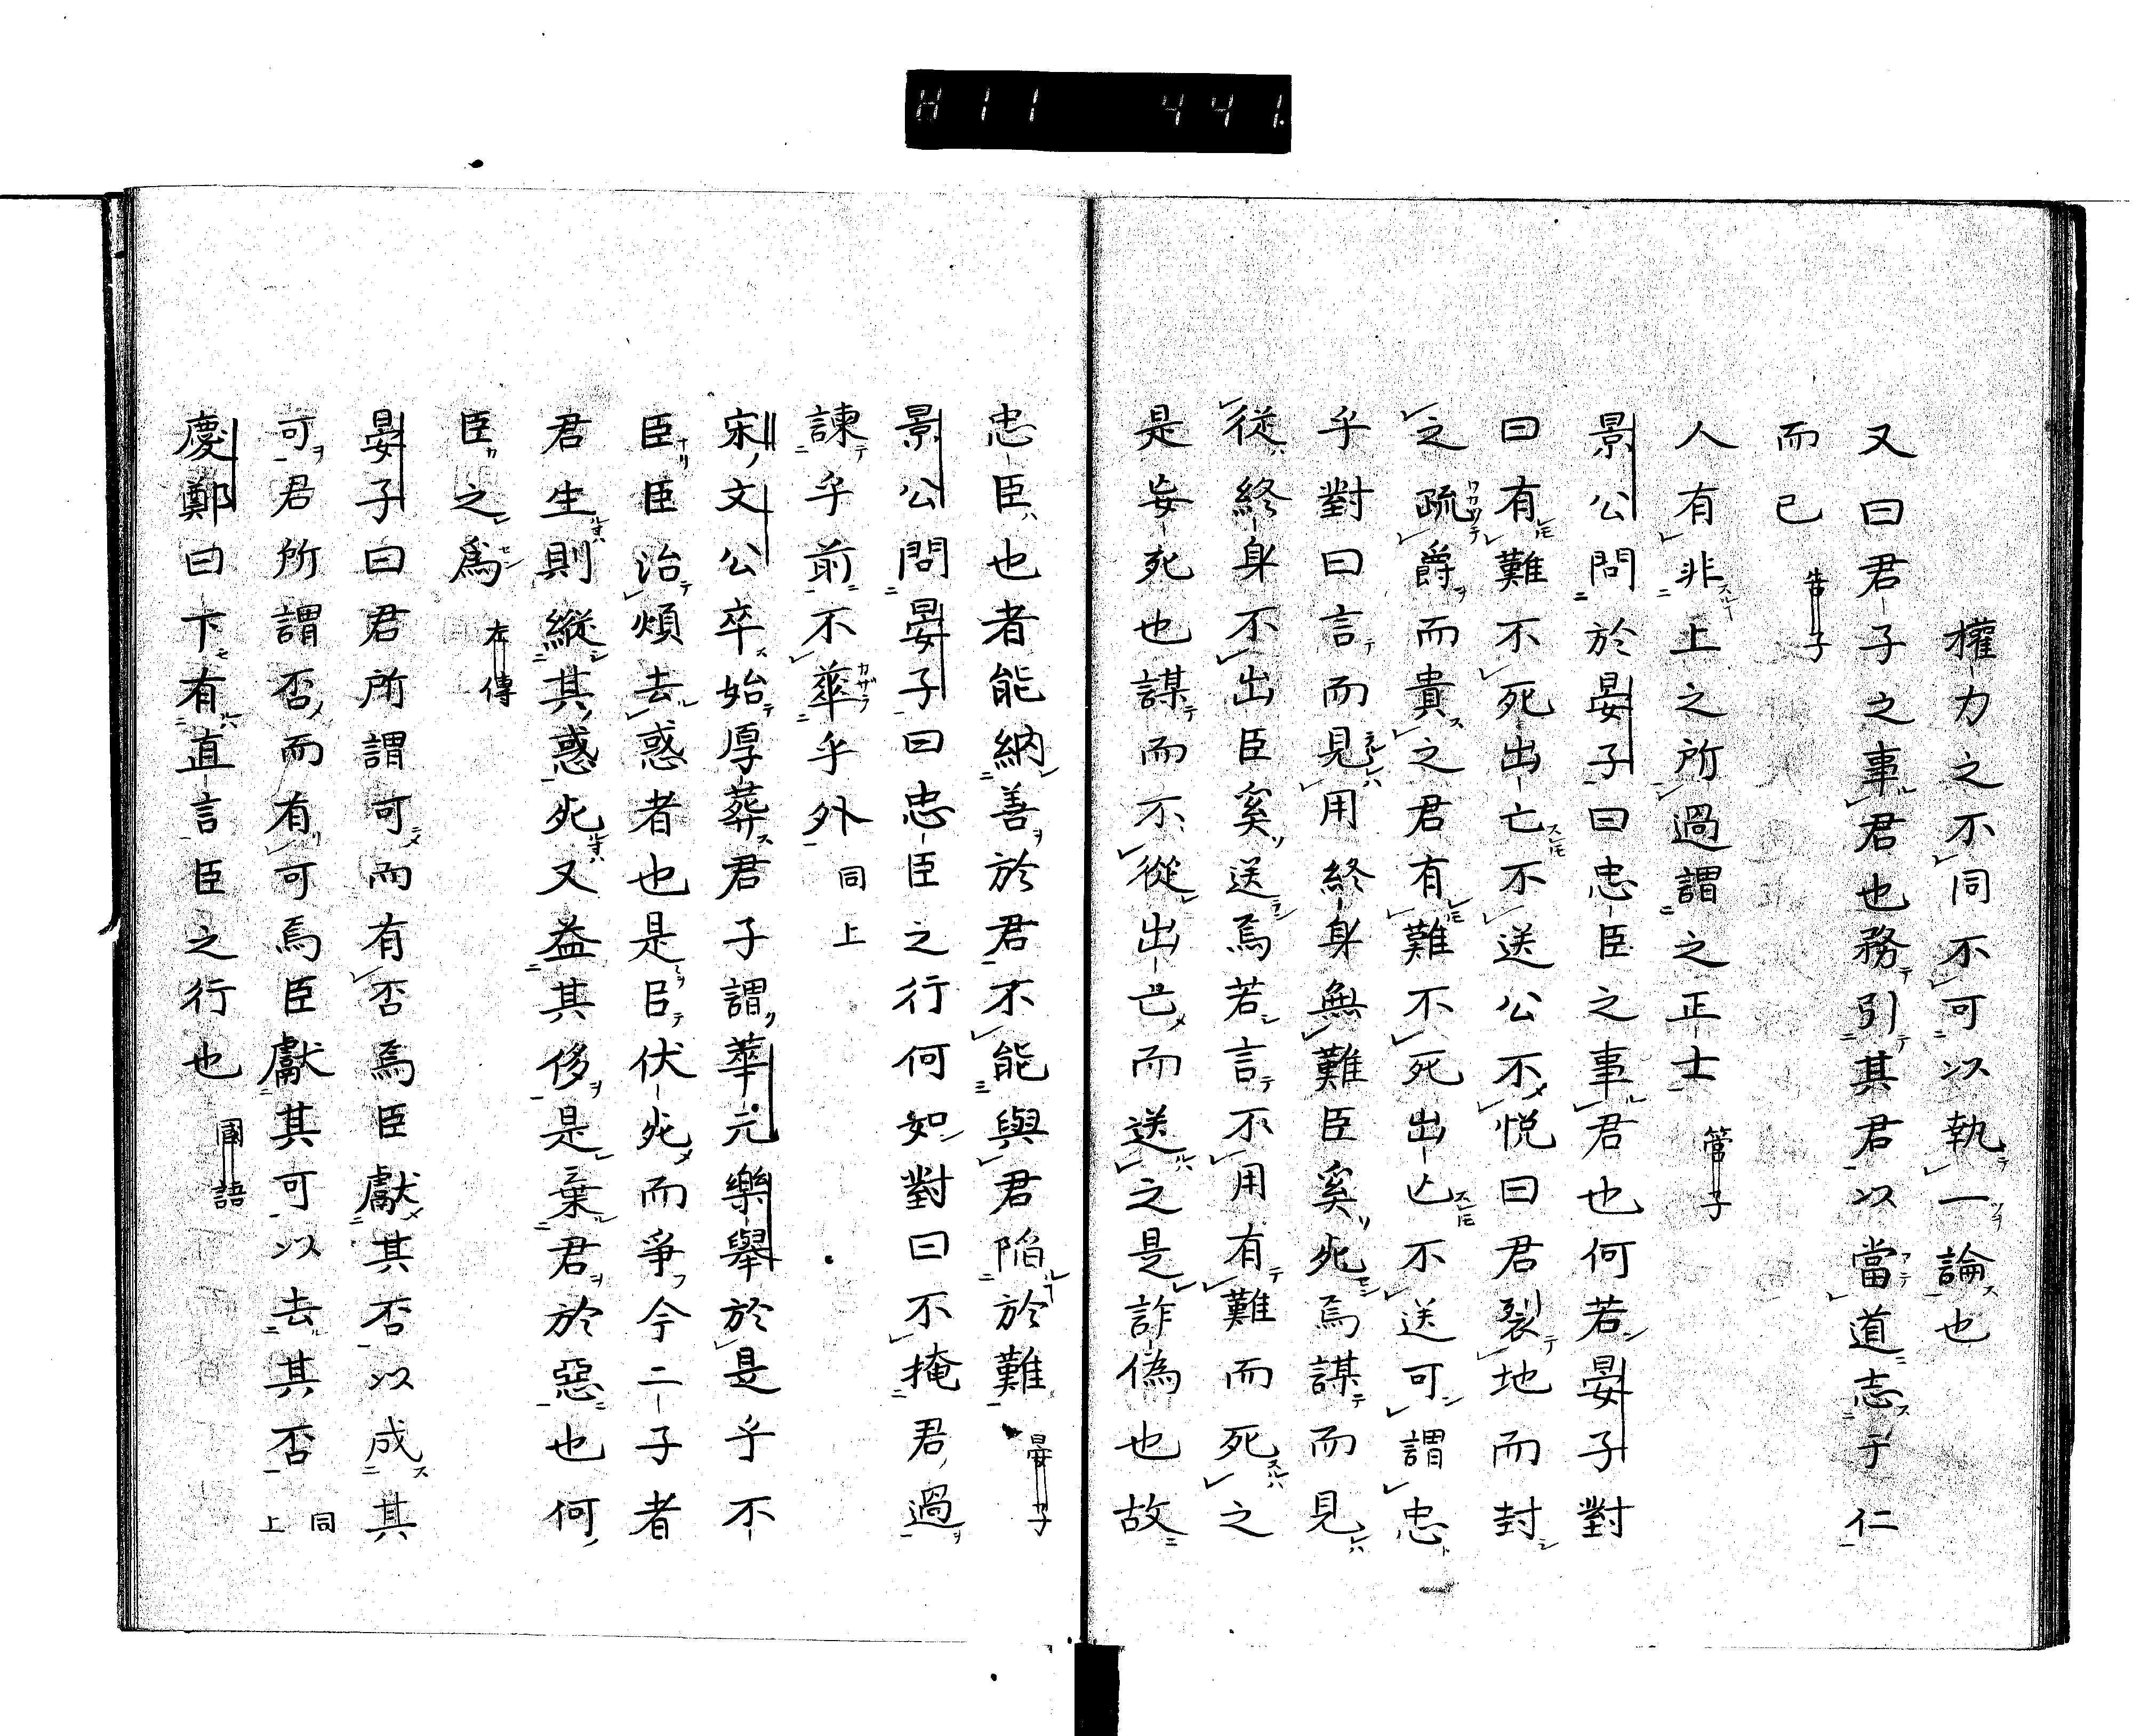 H11 441.
權力之不同不可以執一論也
又曰君子之事君也務引其君以當道志于仁
而已 告子
人有非上之所過謂之正士 管子
景公問於晏子曰忠臣之事君也何若晏子對
曰有難不死出亡不送公不悅曰君裂地而封
之疏爵而貴之君有難不死出亡不送可謂忠
乎對曰言而見用終身無難臣奚死焉謀而見
從終身不出臣奚送焉若言不用有難而死之
是妄死也謀而不從出亡而送之是詐偽也故
忠臣也者能納善於君不能與君陷於難 晏子
景公問晏子曰忠臣之行何如對曰不掩君過
諫乎前不華乎外 同上
宋文公卒始厚葬君子謂華元樂舉於是乎不
臣臣治煩去惑者也是㠯伏死而爭今二子者
君生則縱其惑死又益其侈是棄君於惡也何
臣之爲 左傳
晏子曰君所謂可而有否焉臣獻其否以成其
可君所謂否而有可焉臣獻其可以去其否 同上
慶鄭曰下有直言臣之行也 國語